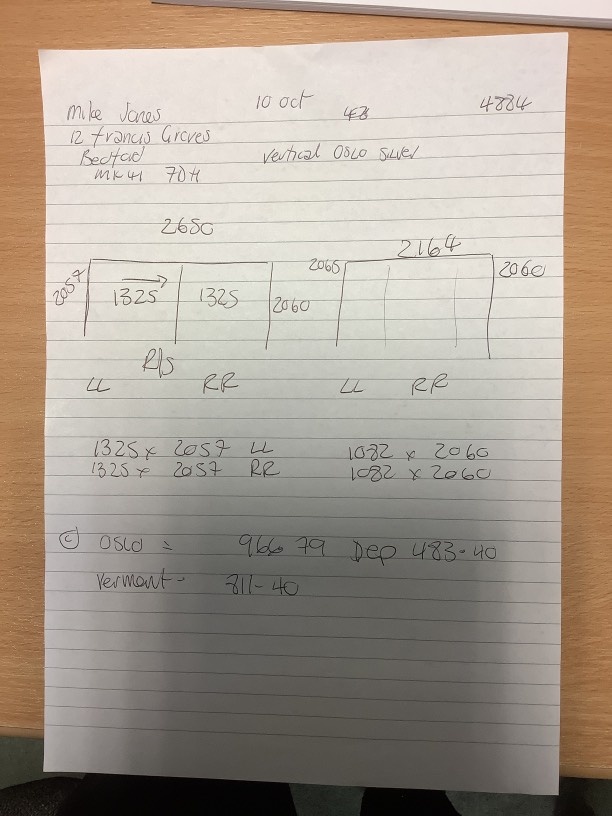 Mike Jones 10 oct 48 4884
12 Francis Groves
Bedford Vertical Oslo Silver
MK41 7DH
2650
2164
2057 1325 1325 2060
2065 2060
R/S
LL RR LL RR
1325 x 2057 LL 1082 x 2060
1325 x 2057 RR 1082 x 2060
C Oslo = 966 79 Dep 483-40
Vermont - 811-40